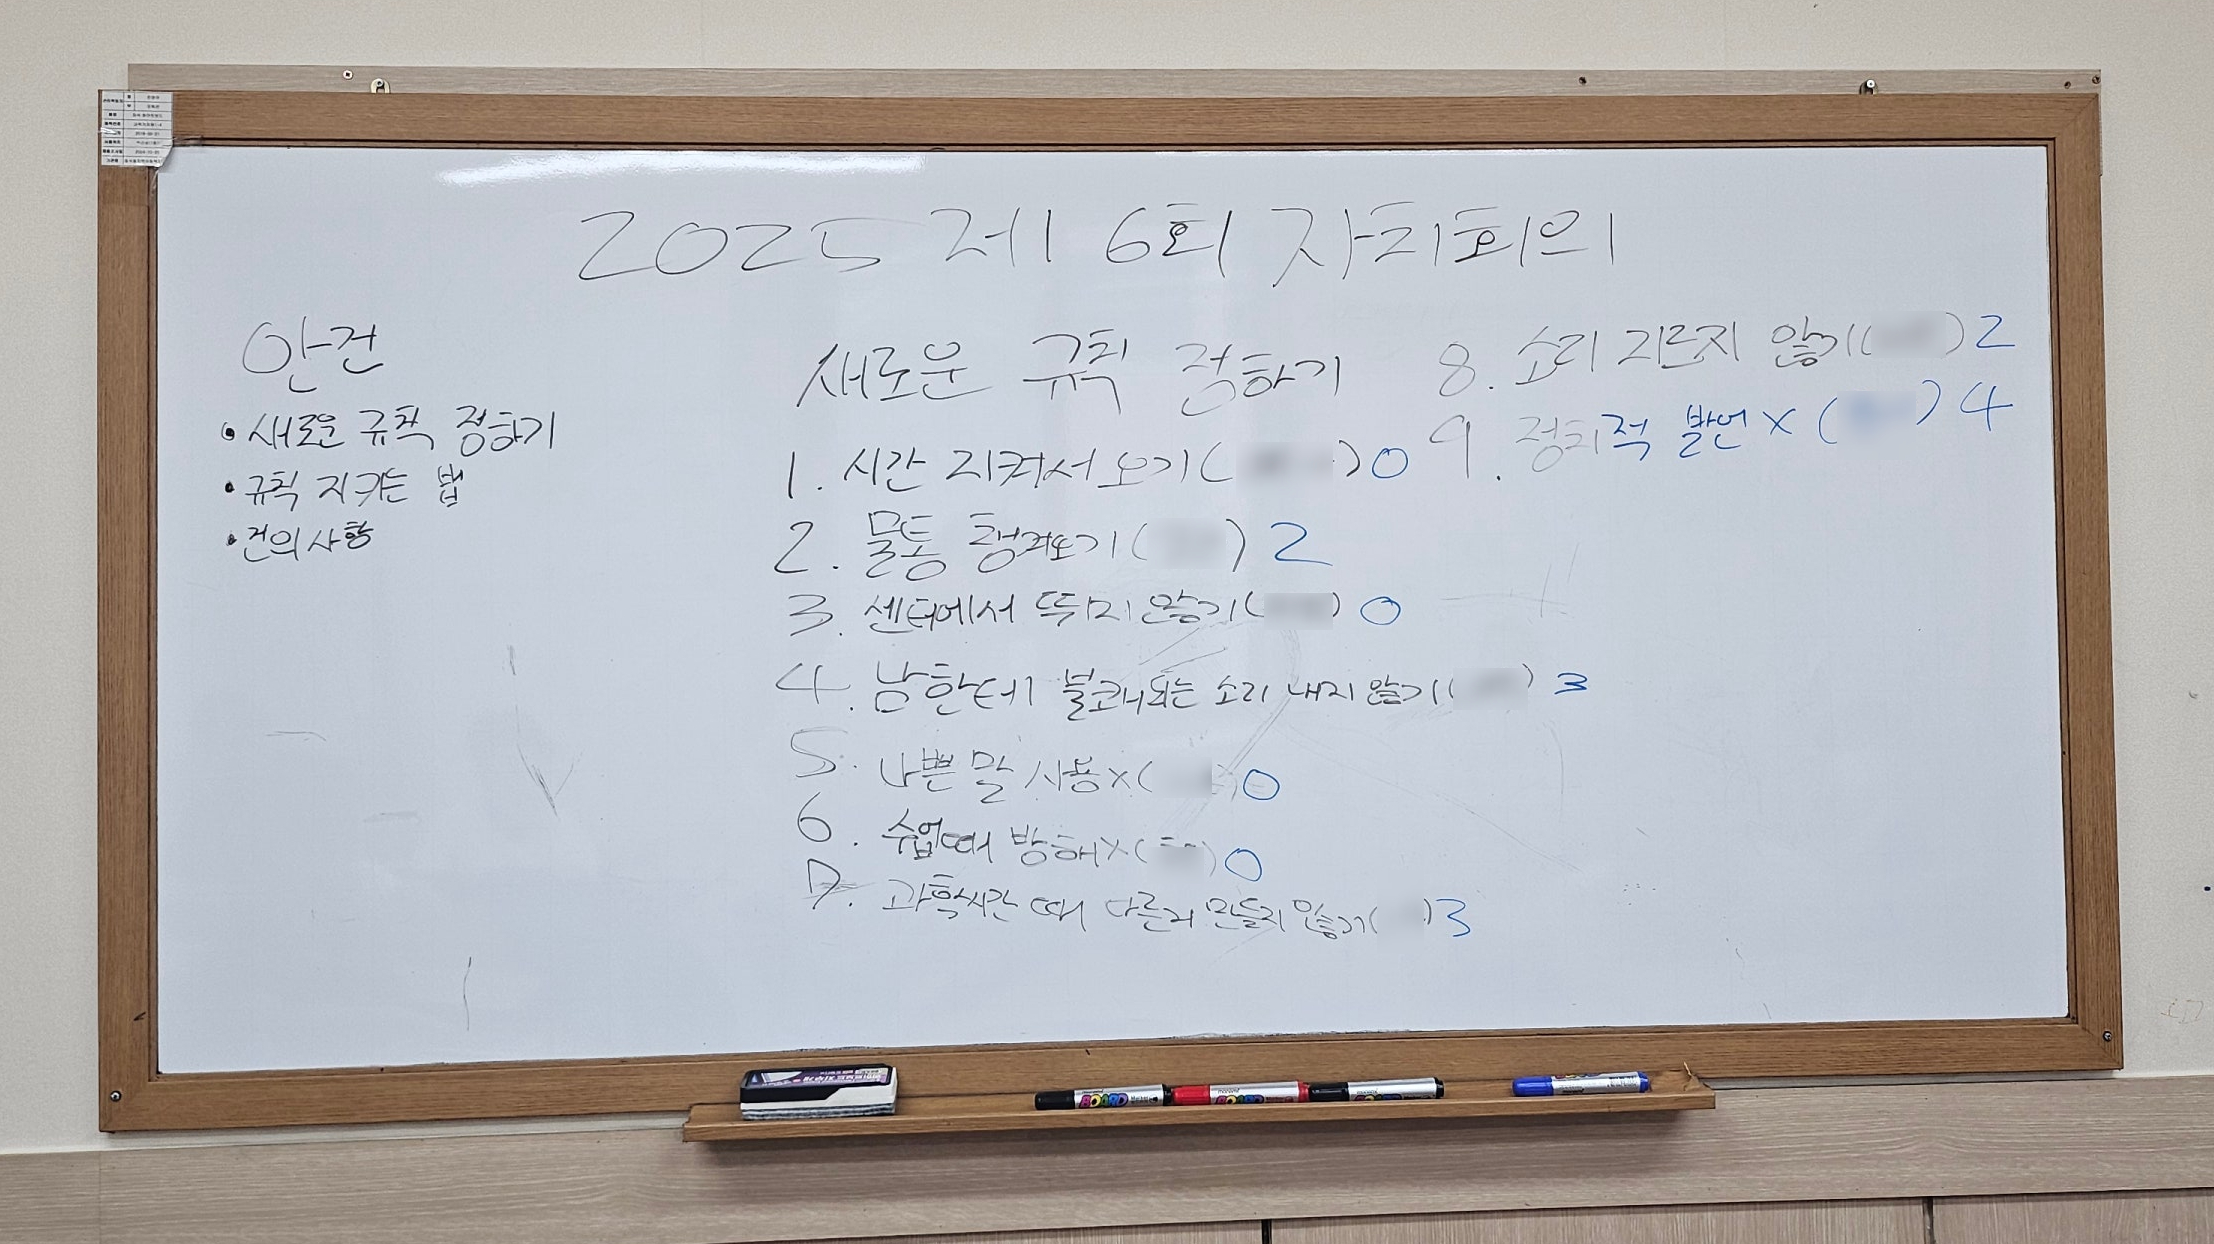 2025 제 6회 자치회의
안건
• 새로운 규칙 정하기
• 규칙 지키는 법
• 건의사항
새로운 규칙 정하기
1. 시간 지켜서 오기( )0
2. 물통 챙겨오기( ) 2
3. 센터에서 뚝띠지 않기( ) 0
4. 남한테 불쾌되는 소리 내지 않기( ) 3
5. 나쁜 말 사용×( )0
6. 수업때 방해×( )0
7. 과학시간 때 다른거 만들지 않기( )3
8. 소리 지르지 않기( )2
9. 정치적 발언 × ( ) 4
BOARD
BOARD
BOARD